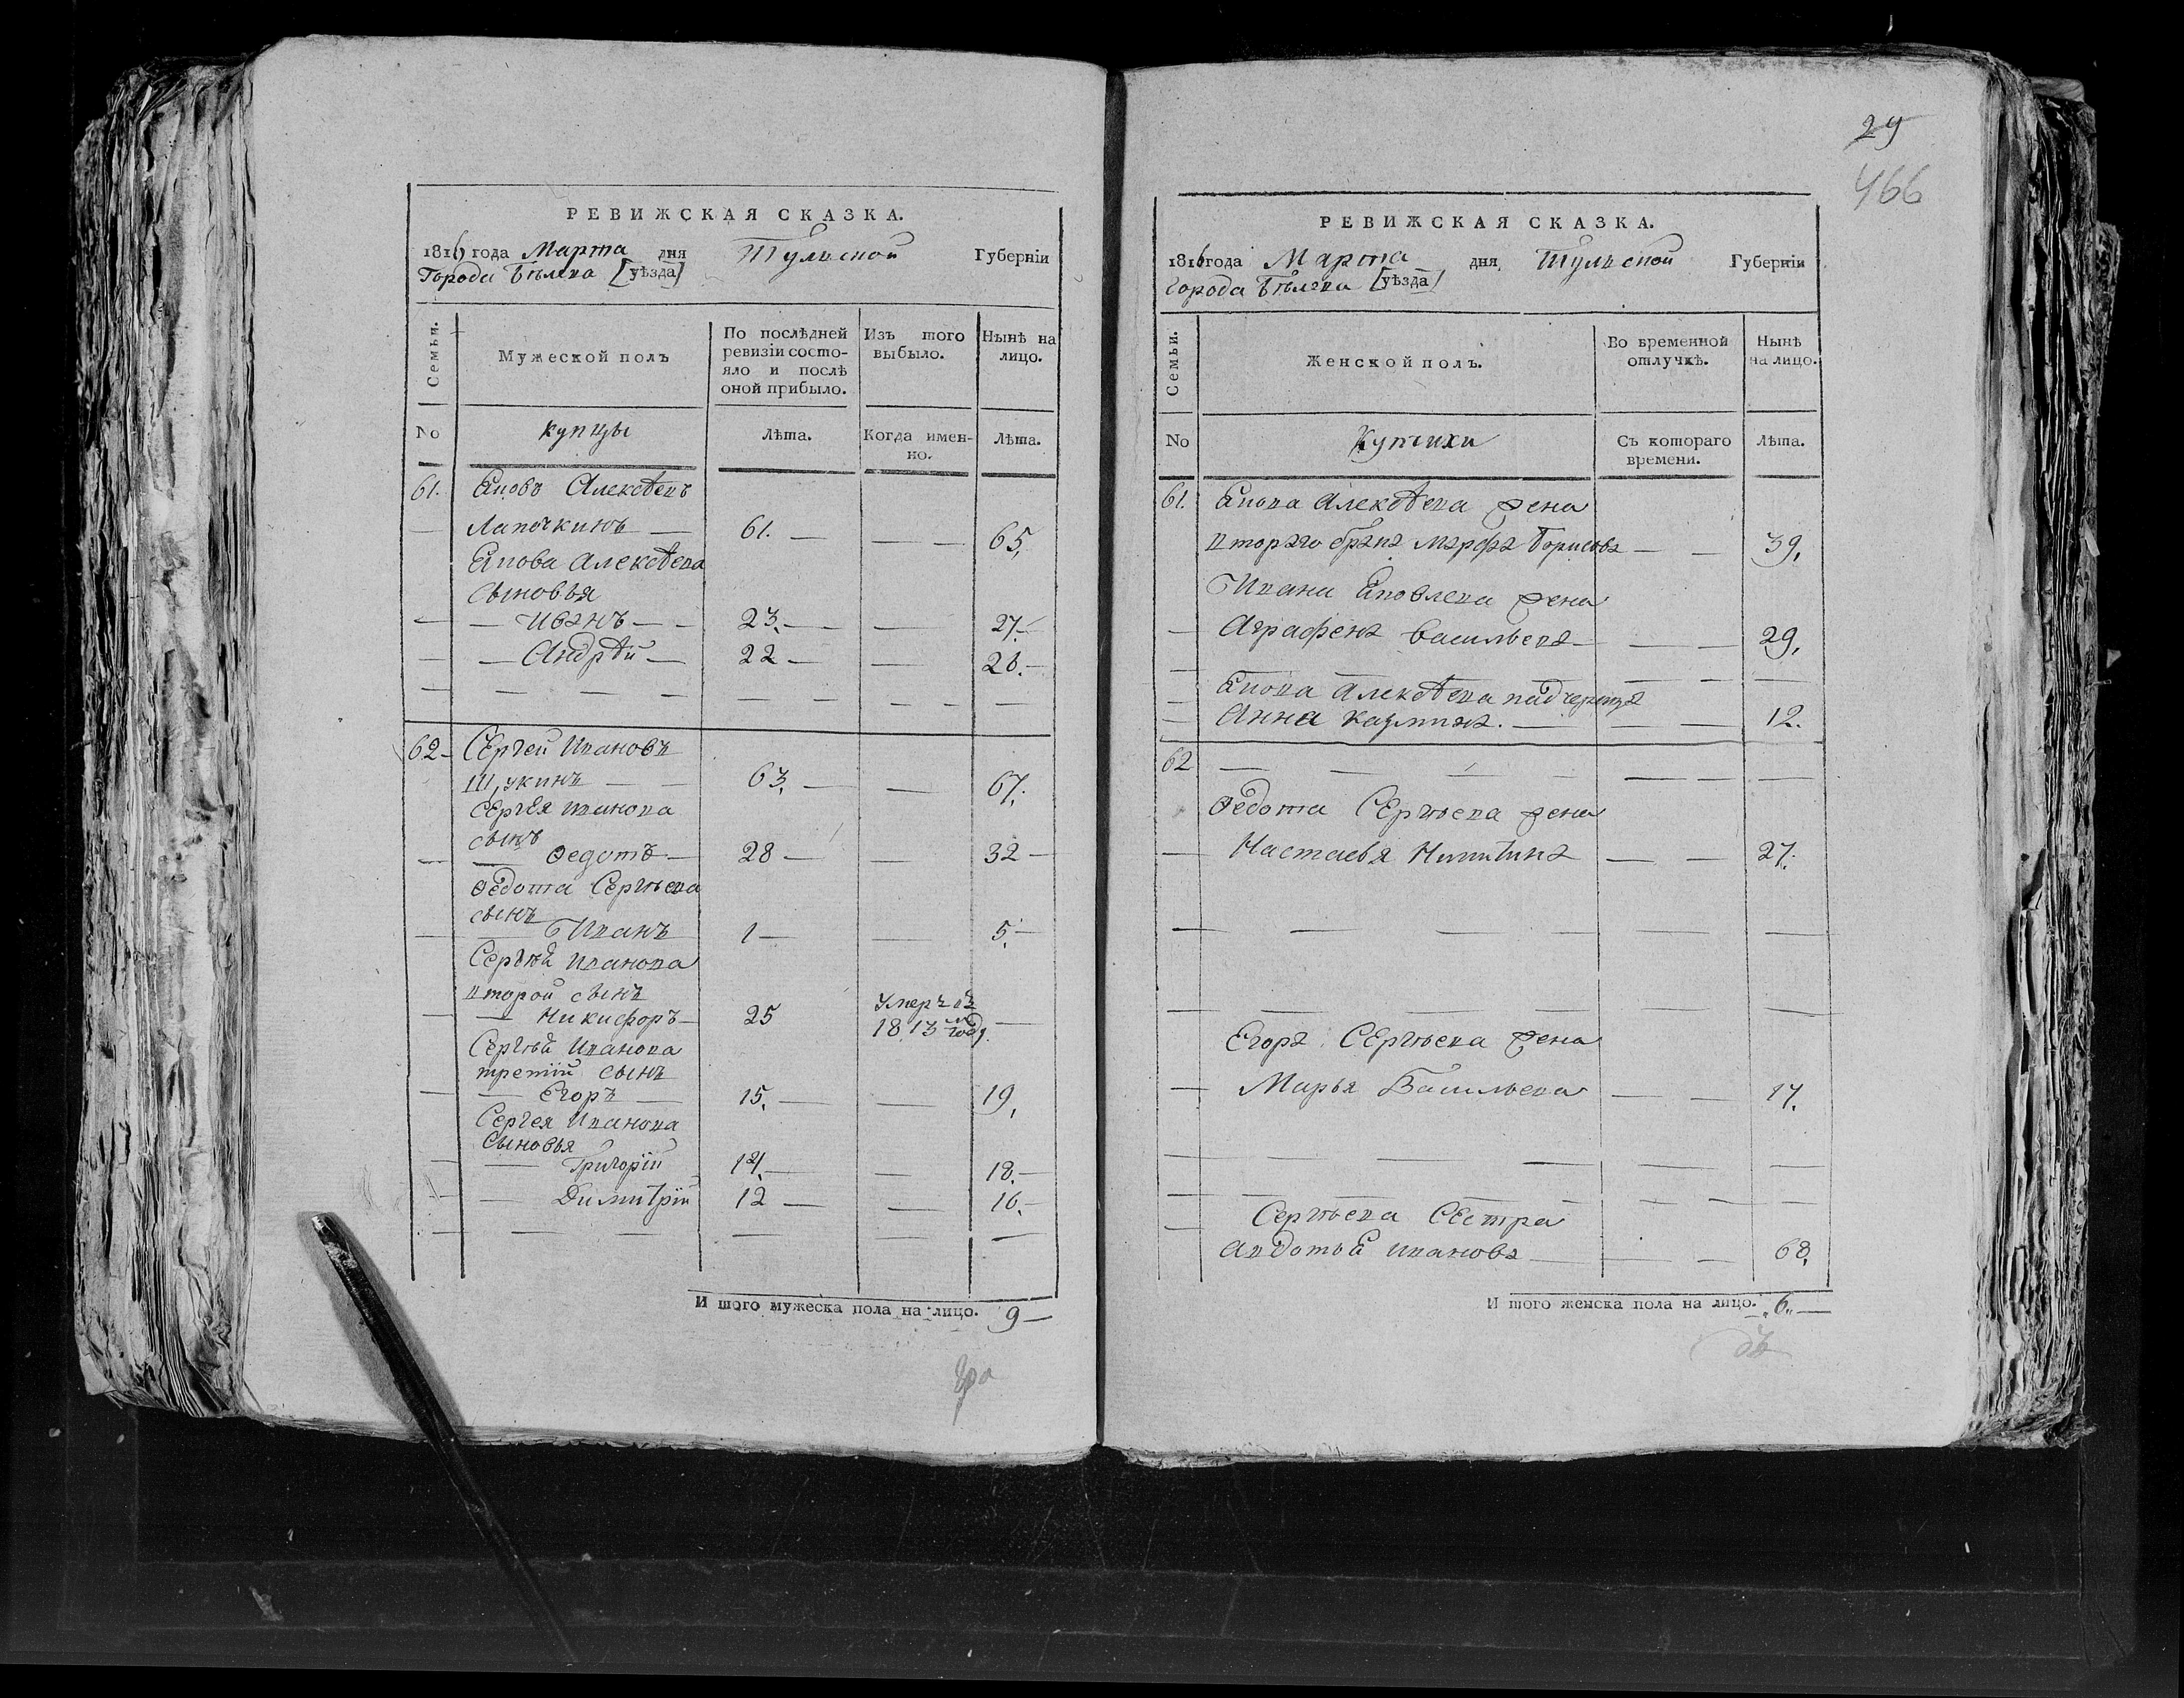 РЕВИЖСКАЯ СКАЗКА.
1816 года Марта дня Тульской Губерніи
Города Бѣлева [уѣзда]
Семьи. Мужеской полъ По послѣдней ревизіи состояло и послѣ оной прибыло. Изъ того выбыло. Нынѣ на лицо.
No купцы лѣта. Когда именно. лѣта.
61. Яковъ Алексѣевъ
Лапочкинъ 61. 65.
Якова Алексѣева
сыновья
Иванъ 23. 27.
Андрѣй 22 26.
62 Сергей Ивановъ
Щукинъ 63. 67.
Сергѣя Иванова
сынъ
Ѳедотъ 28 32
Ѳедота Сергѣева
сынъ
Иванъ 1 5.
Сергѣя Иванова
второй сынъ
Никифоръ 25 Умеръ въ 1813 м году
Сергѣя Иванова
третїй сынъ
Егоръ 15. 19.
Сергея Иванова
Сыновья
Григорїй 14. 18.
Димитрїй 12 16.
И того мужеска пола на лицо. 9
29
466
РЕВИЖСКАЯ СКАЗКА.
1816 года Марта дня Тульской Губерніи
города Бѣлева [уѣзда]
Семьи. Женской полъ. Во временной отлучкѣ. Нынѣ на лицо.
No Купчихи Съ котораго времени. лѣта.
61. Якова Алексѣева жена
втораго брака марфа Борисова 39.
Ивана Яковлева жена
Аграфена Васильева 29.
Якова Алексѣева падчерица
Анна 12.
62
Ѳедота Сергѣева жена
Настасья Никитина 27.
Егора Сергѣева жена
Марья Васильева 17.
Сергѣева Сестра
Авдотья Иванова 68.
И того женска пола на лицо. 6